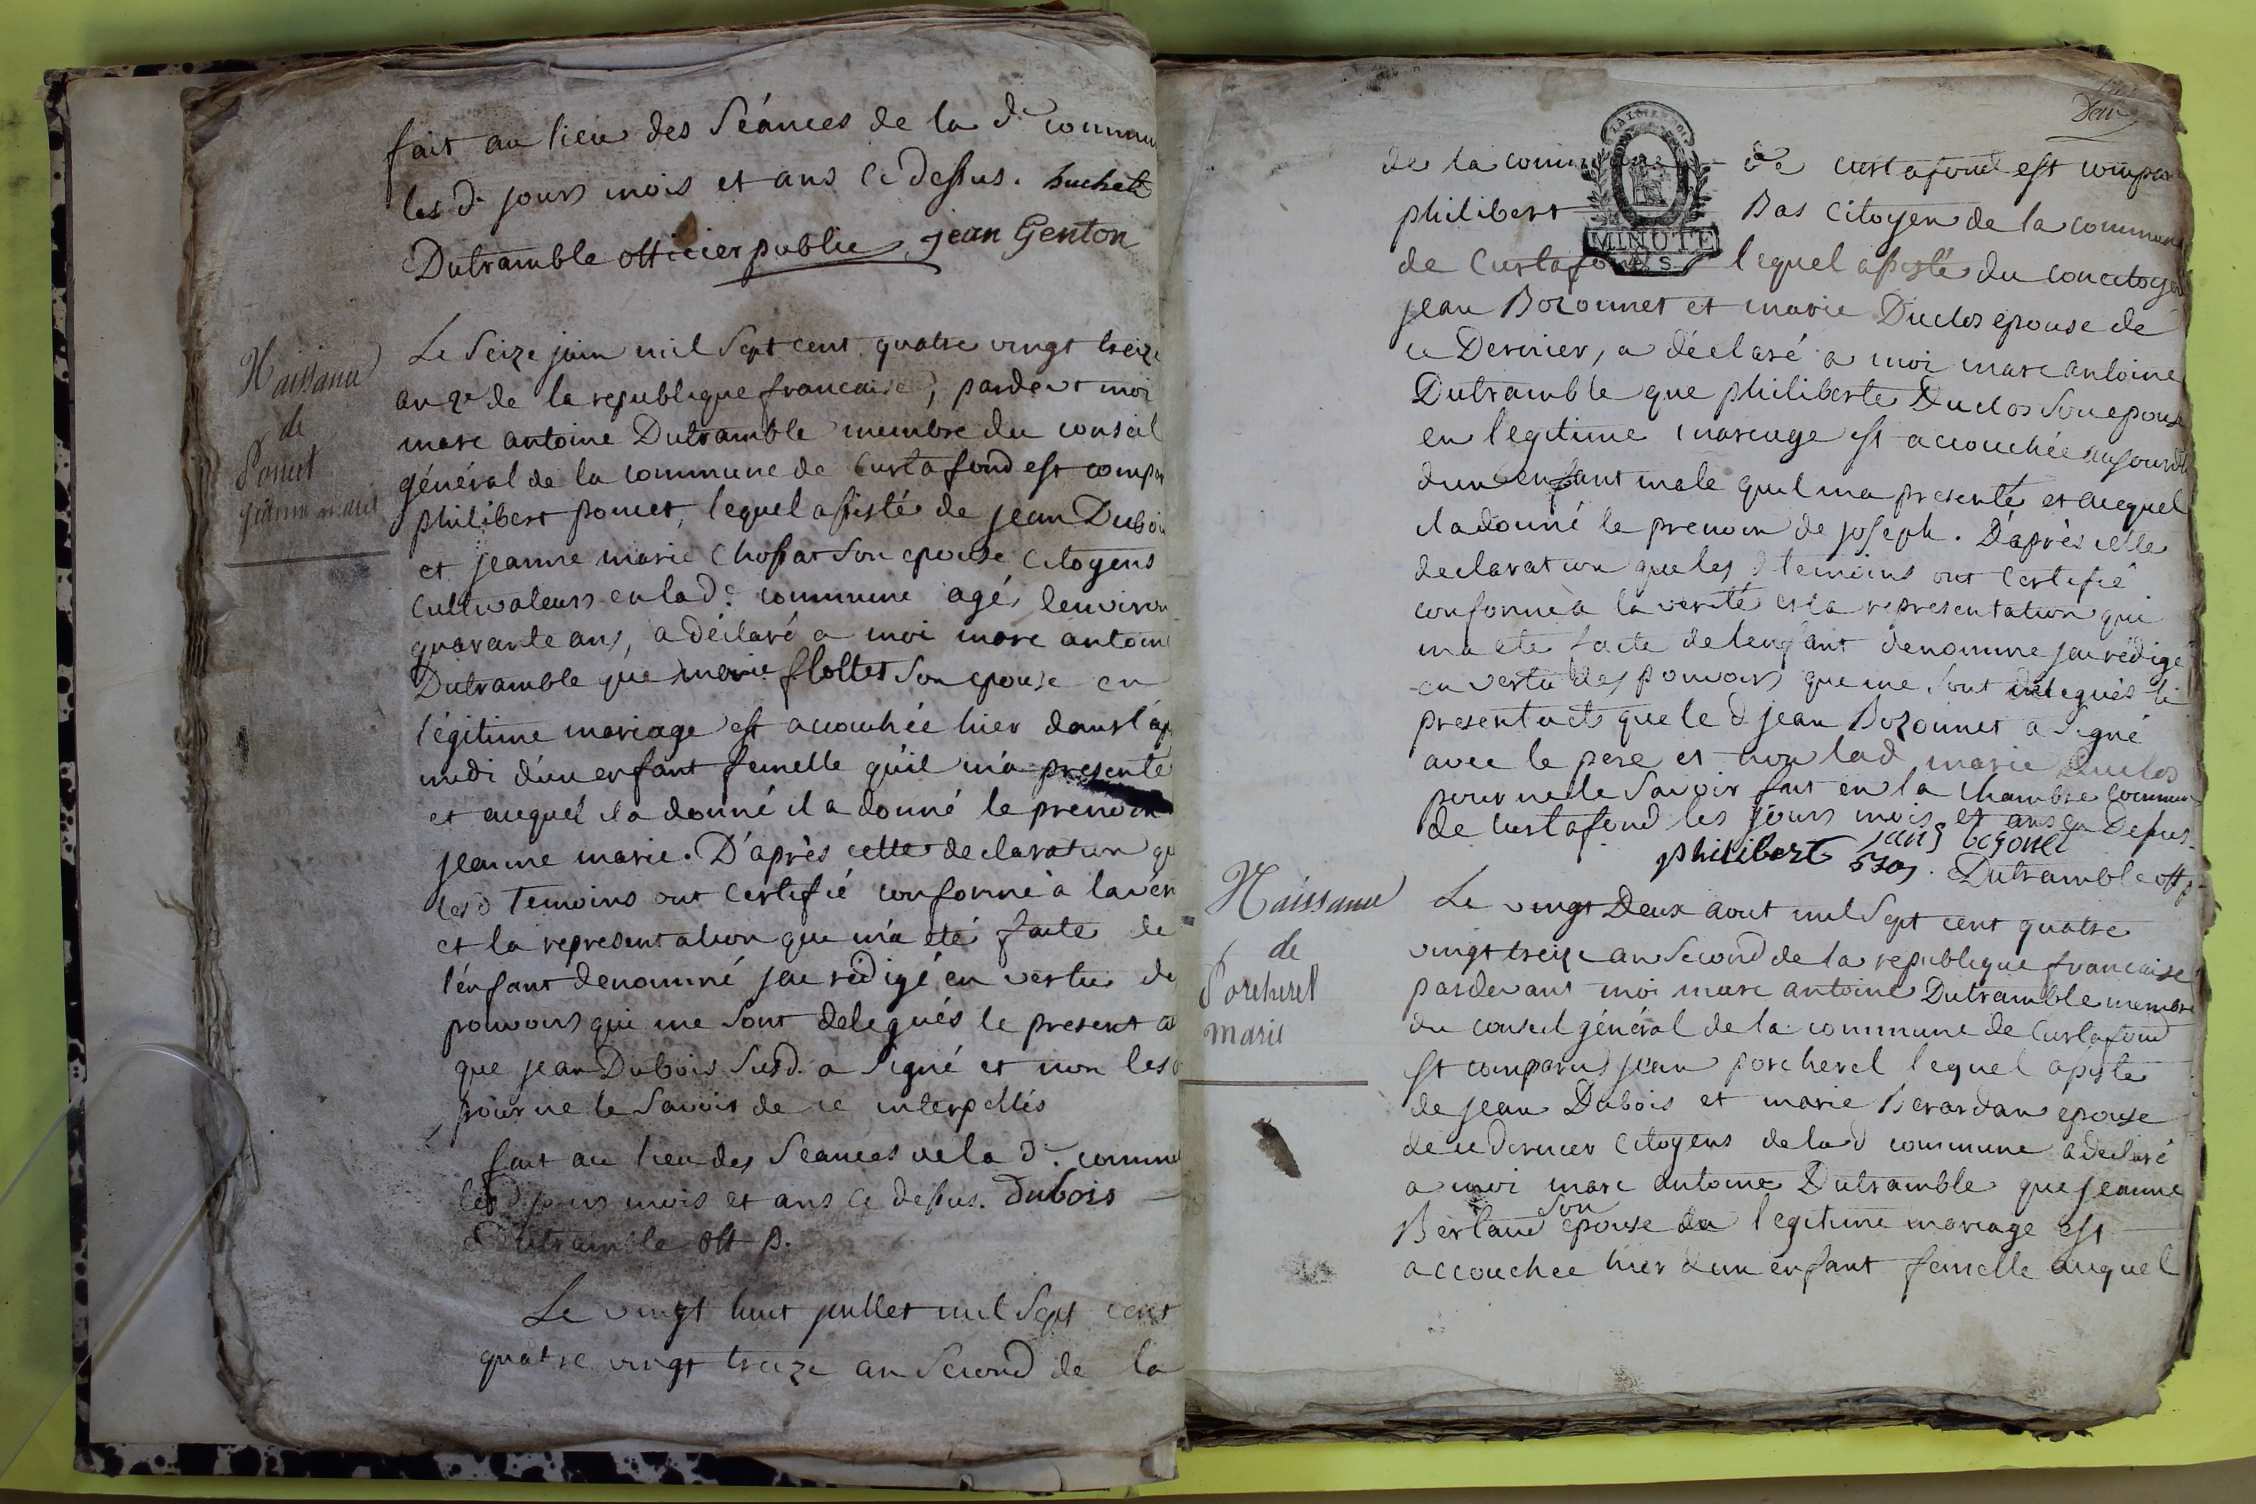 fait au lieu des Séances de la d.e commu
les d. jours mois et ans ci dessus. buchet
Dutramble officier public jean Genton
Naissance
de
Poncet
jeanne marie
Le Seize juin mil Sept cent quatre vingt treize
an 2e de la republique francaise, pardevt moi
marc antoine Dutramble membre du conseil
général de la commune de Curtafond est compa
philibert poncet, lequel assisté de jean Duboi
et jeanne marie Chossat Son epouse Citoyens
Cultivateurs en lad.e commune agés denviron
quarante ans, a déclaré a moi marc antoin
Dutramble que marie flottet Son epouse en
légitime mariage est accouchée hier dans l'ap
midi d'un enfant femelle qu'il m'a presenté
et auquel il a donné il a donné le prenom
jeanne marie. D'après cette declaration qu
les d temoins ont certifié conforme à la ver
et la representation qui m'a été faite de
l'enfant denommé jai redigé en vertu de
pouvoirs qui me Sont delegués le present a
que jean Dubois Susd. a Signé et non les
pour ne le Savoir de ce interpellés
fait au lieu des Seances de la d.e commu
les d jours mois et ans ci dessus. Dubois
Dutramble off p.
Le vingt huit juillet mil Sept cent
quatre vingt treize an Second de la
Deux
de la commune de curtafond est compar
MINUTE
philibert Bas Citoyen de la commune
de Curtafond lequel assisté du concitoyen
jean Bozonnet et marie Duclos épouse de
ce Dernier, a déclaré a moi marc antoine
Dutramble que philiberte Duclos Son epouse
en legitime mariage est accouchée aujourdh
dun enfant male quil ma presenté et auquel
il a donné le prenom de joseph. D'après cette
declaration que les d temoins ont certifié
conforme à la verité et la representation qui
ma eté faite de lenfant denomme jai redigé
en vertu des pouvoirs que me Sont delegués le
present acte que le d jean Bozonnet a Signé
avec le pere et non lad marie Duclos
pour ne le Savoir fait en la chambre commun
de curtafond les jours mois et ans ci Dessus.
philibert bas jang bozonet
Dutramble off p.
Naissance
de
Porcherel
marie
Le vingt Deux aout mil Sept cent quatre
vingt treize an Second de la republique francaise
pardevant moi marc antoine Dutramble membre
du conseil général de la commune de Curtafond
est comparu jean porcherel lequel assisté
de jean Dubois et marie Berardan épouse
de ce dernier citoyens de la d commune a declaré
a moi marc antoine Dutramble que jeanne
Berlaud Son epouse en legitime mariage est
accouchee hier dun enfant femelle auquel